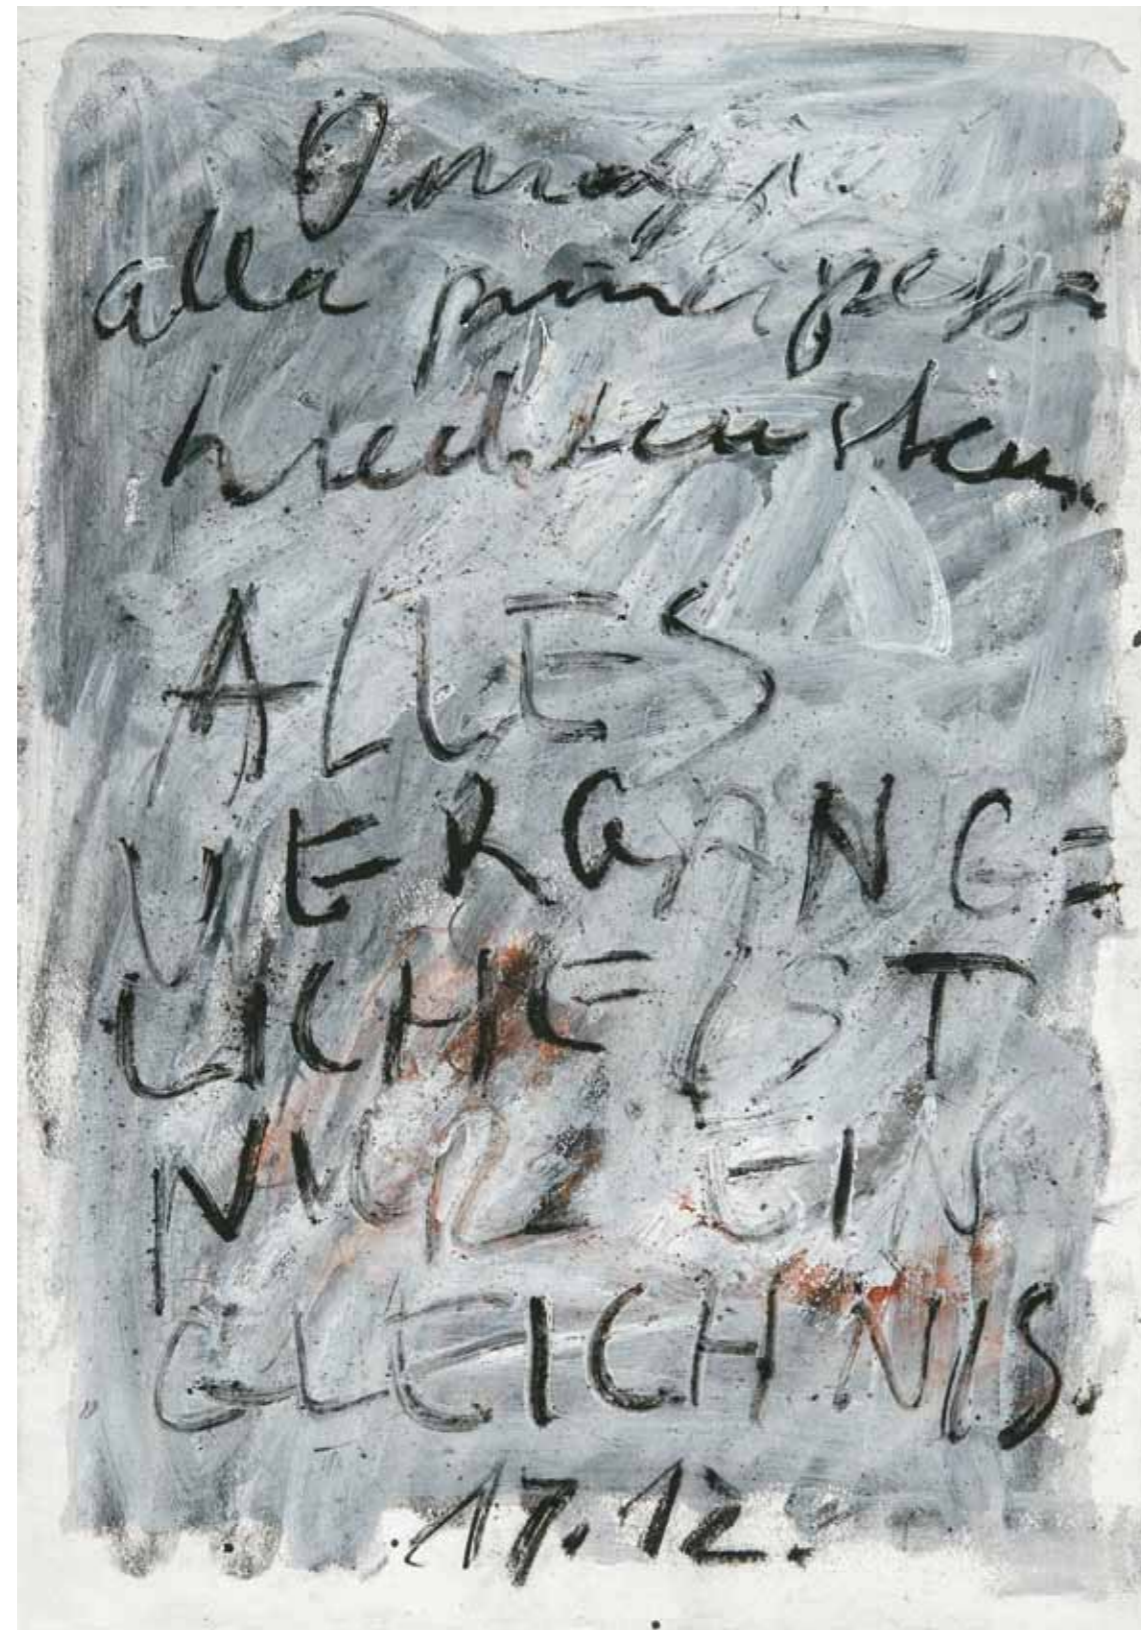 Omaggio
alla principessa
Liechtenstein
ALLES
VERGANG=
LICHE IST
NUR EIN
GLEICHNIS.
17.12.